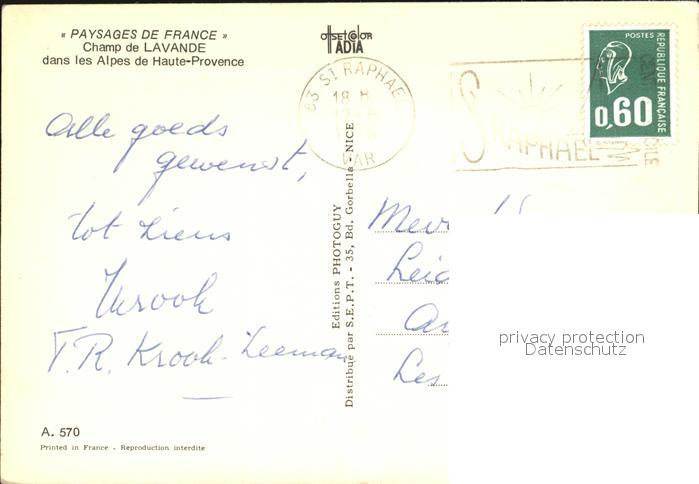 « PAYSAGES DE FRANCE »
Champ de LAVANDE
dans les Alpes de Haute-Provence
OFFSET COLOR
IADIA
83 ST RAPHAEL
18 H
VAR
ST RAPHAEL
POSTES
RÉPUBLIQUE FRANÇAISE
0,60
Alle goeds
gewenst,
tot ziens
TKrook
T.R. Krook-Zeeman
Editions PHOTOGUY
Distribué par S.E.P.T. - 35, Bd. Gorbella NICE
Mevr
Leid
Les
privacy protection
Datenschutz
A. 570
Printed in France - Reproduction interdite